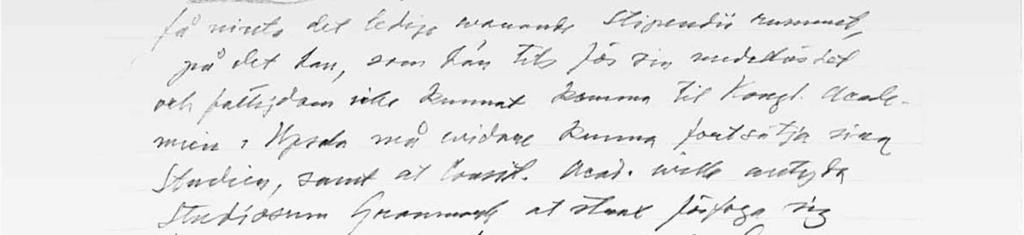 få niuta det ledige warande Stipendii rummet,
på det han, som här til för sin medellöshet
och fattigdom icke kunnat komma til Kongl. Acade-
mien i Upsala må widare kunna fortsätja sina
Studier, samt at Consist. Acad. wille antyda
Studiosum at strax förfoga sig